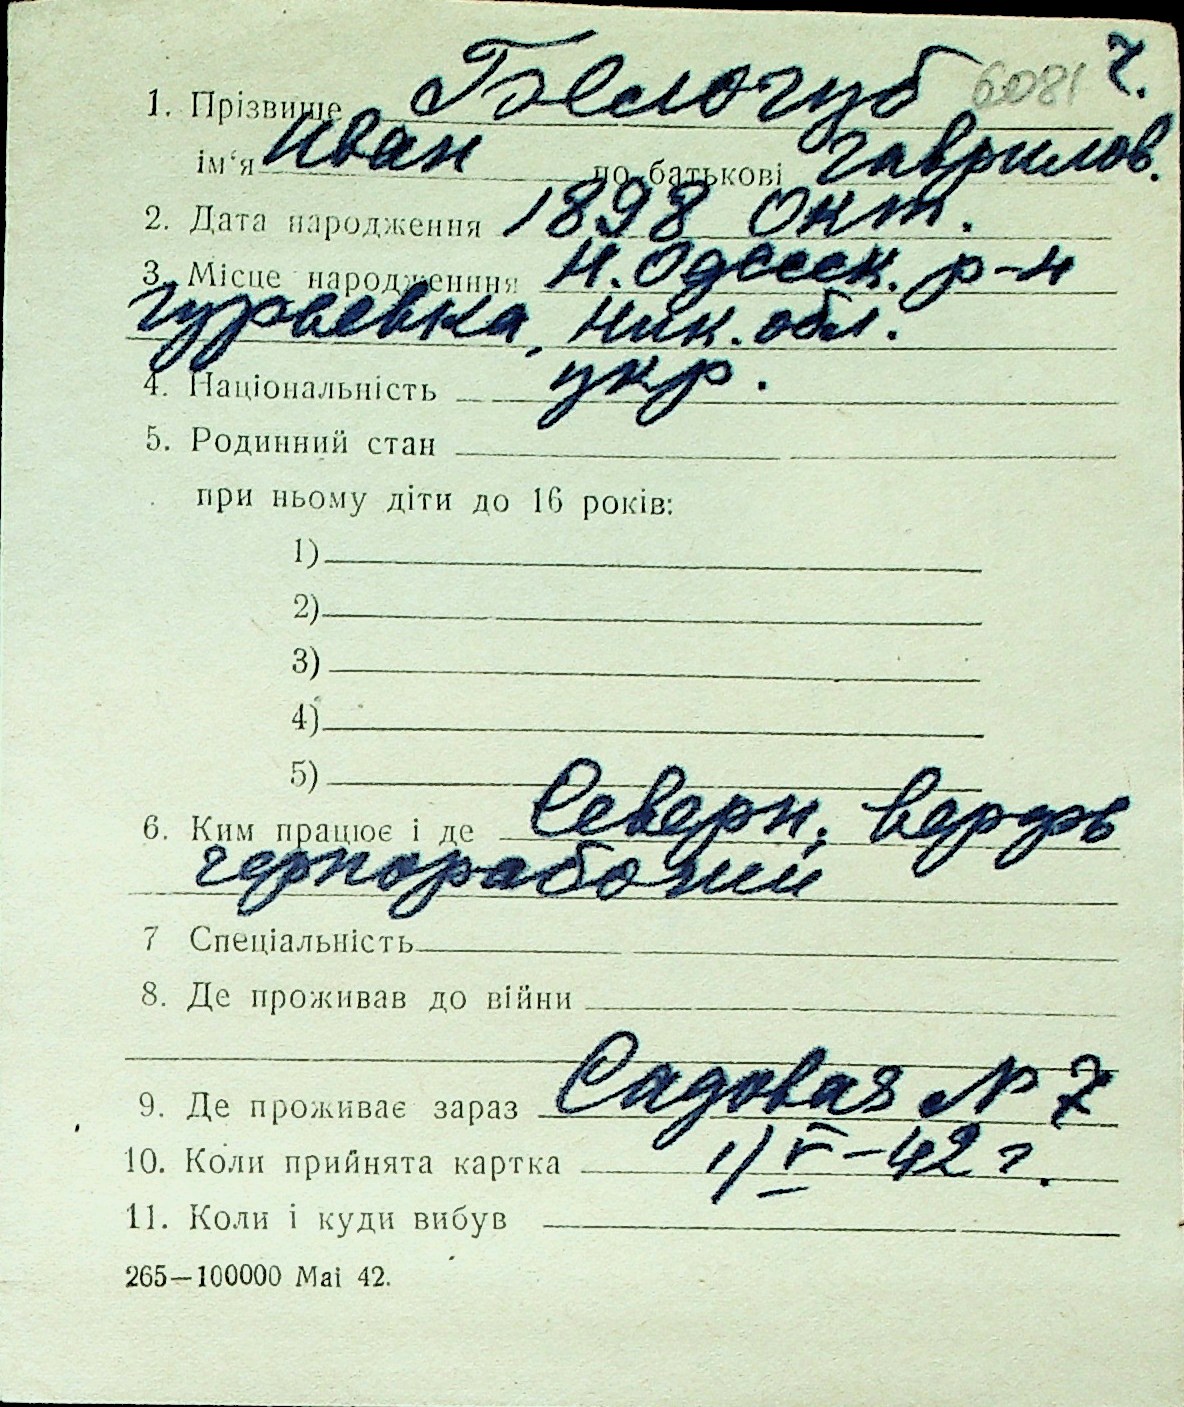 1. Прізвище Белогуб 6081 7.
ім'я Иван по батькові Гаврилов.
2. Дата народження 1898 Окт.
3. Місце народженння Н. Одесск. р-н
Гурьевка, Ник. обл.
4. Національність укр.
5. Родинний стан
при ньому діти до 16 років:
1)
2)
3)
4)
5)
6. Ким працює і де Северн. верфь
чернорабочий
7 Спеціальність
8. Де проживав до війни
9. Де проживає зараз Садовая № 7
10. Коли прийнята картка 1/V-42 г.
11. Коли і куди вибув
265—100000 Mai 42.